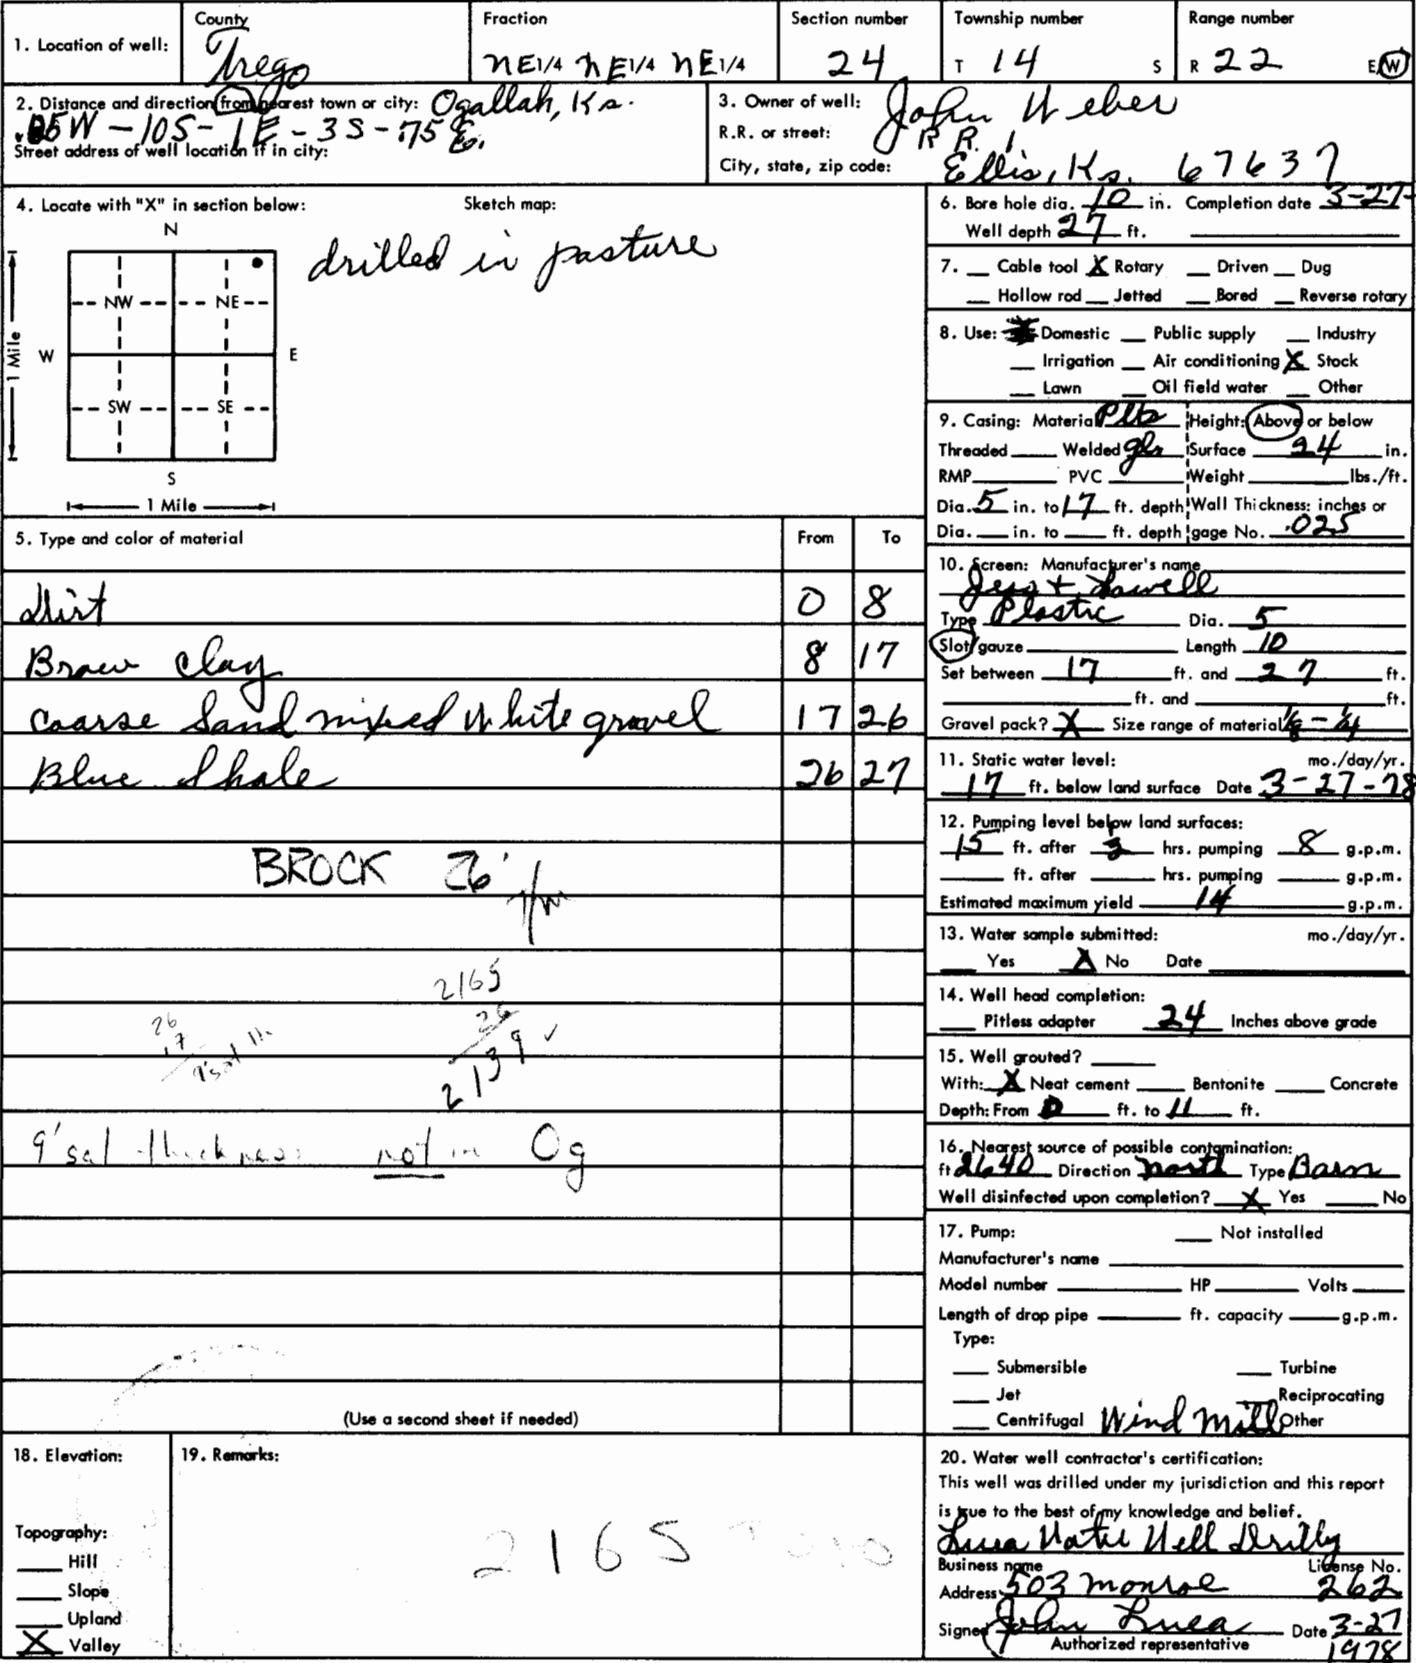 1. Location of well:
County
Trego
Fraction
NE1/4 NE1/4 NE1/4
Section number
24
Township number
T 14 S
Range number
R 22 E/W
2. Distance and direction from nearest town or city: Ogallah, Ks.
5W - 10S - 1E - 3S - .75 E.
Street address of well location if in city:
3. Owner of well: John Weber
R.R. or street: R R. 1
City, state, zip code: Ellis, Ks. 67637
4. Locate with "X" in section below:
Sketch map:
drilled in pasture
N
NW NE
W E
SW SE
S
1 Mile
1 Mile
5. Type and color of material From To
Dirt 0 8
Brow clay 8 17
coarse sand mixed white gravel 17 26
Blue Shale 26 27
BROCK 26'
2165
26
2139 ✓
26
17
9' sat th
9' sat thickness not in Og
(Use a second sheet if needed)
6. Bore hole dia. 10 in. Completion date 3-27-
Well depth 27 ft.
7. Cable tool X Rotary Driven Dug
Hollow rod Jetted Bored Reverse rotary
8. Use: Domestic Public supply Industry
Irrigation Air conditioning X Stock
Lawn Oil field water Other
9. Casing: Material Height: Above or below
Threaded Welded Surface 24 in.
RMP PVC Weight lbs./ft.
Dia. 5 in. to 17 ft. depth Wall Thickness: inches or
Dia. in. to ft. depth gage No. .025
10. Screen: Manufacturer's name
Jess + Lowell
Type Plastic Dia. 5
Slot/gauze Length 10
Set between 17 ft. and 27 ft.
ft. and ft.
Gravel pack? X Size range of material 1/8 - 1/4
11. Static water level: mo./day/yr.
17 ft. below land surface Date 3-27-78
12. Pumping level below land surfaces:
15 ft. after 3 hrs. pumping 8 g.p.m.
ft. after hrs. pumping g.p.m.
Estimated maximum yield 14 g.p.m.
13. Water sample submitted: mo./day/yr.
Yes X No Date
14. Well head completion:
Pitless adapter 24 Inches above grade
15. Well grouted?
With: X Neat cement Bentonite Concrete
Depth: From 0 ft. to 11 ft.
16. Nearest source of possible contamination:
ft 2640 Direction north Type Barn
Well disinfected upon completion? X Yes No
17. Pump: Not installed
Manufacturer's name
Model number HP Volts
Length of drop pipe ft. capacity g.p.m.
Type:
Submersible Turbine
Jet Reciprocating
Centrifugal Wind Mill Other
18. Elevation:
Topography:
Hill
Slope
Upland
X Valley
19. Remarks:
2165
20. Water well contractor's certification:
This well was drilled under my jurisdiction and this report
is true to the best of my knowledge and belief.
Luea Water Well Drilly
Business name License No.
Address 503 Monroe 262
Signed John Luea Date 3-27
Authorized representative 1978